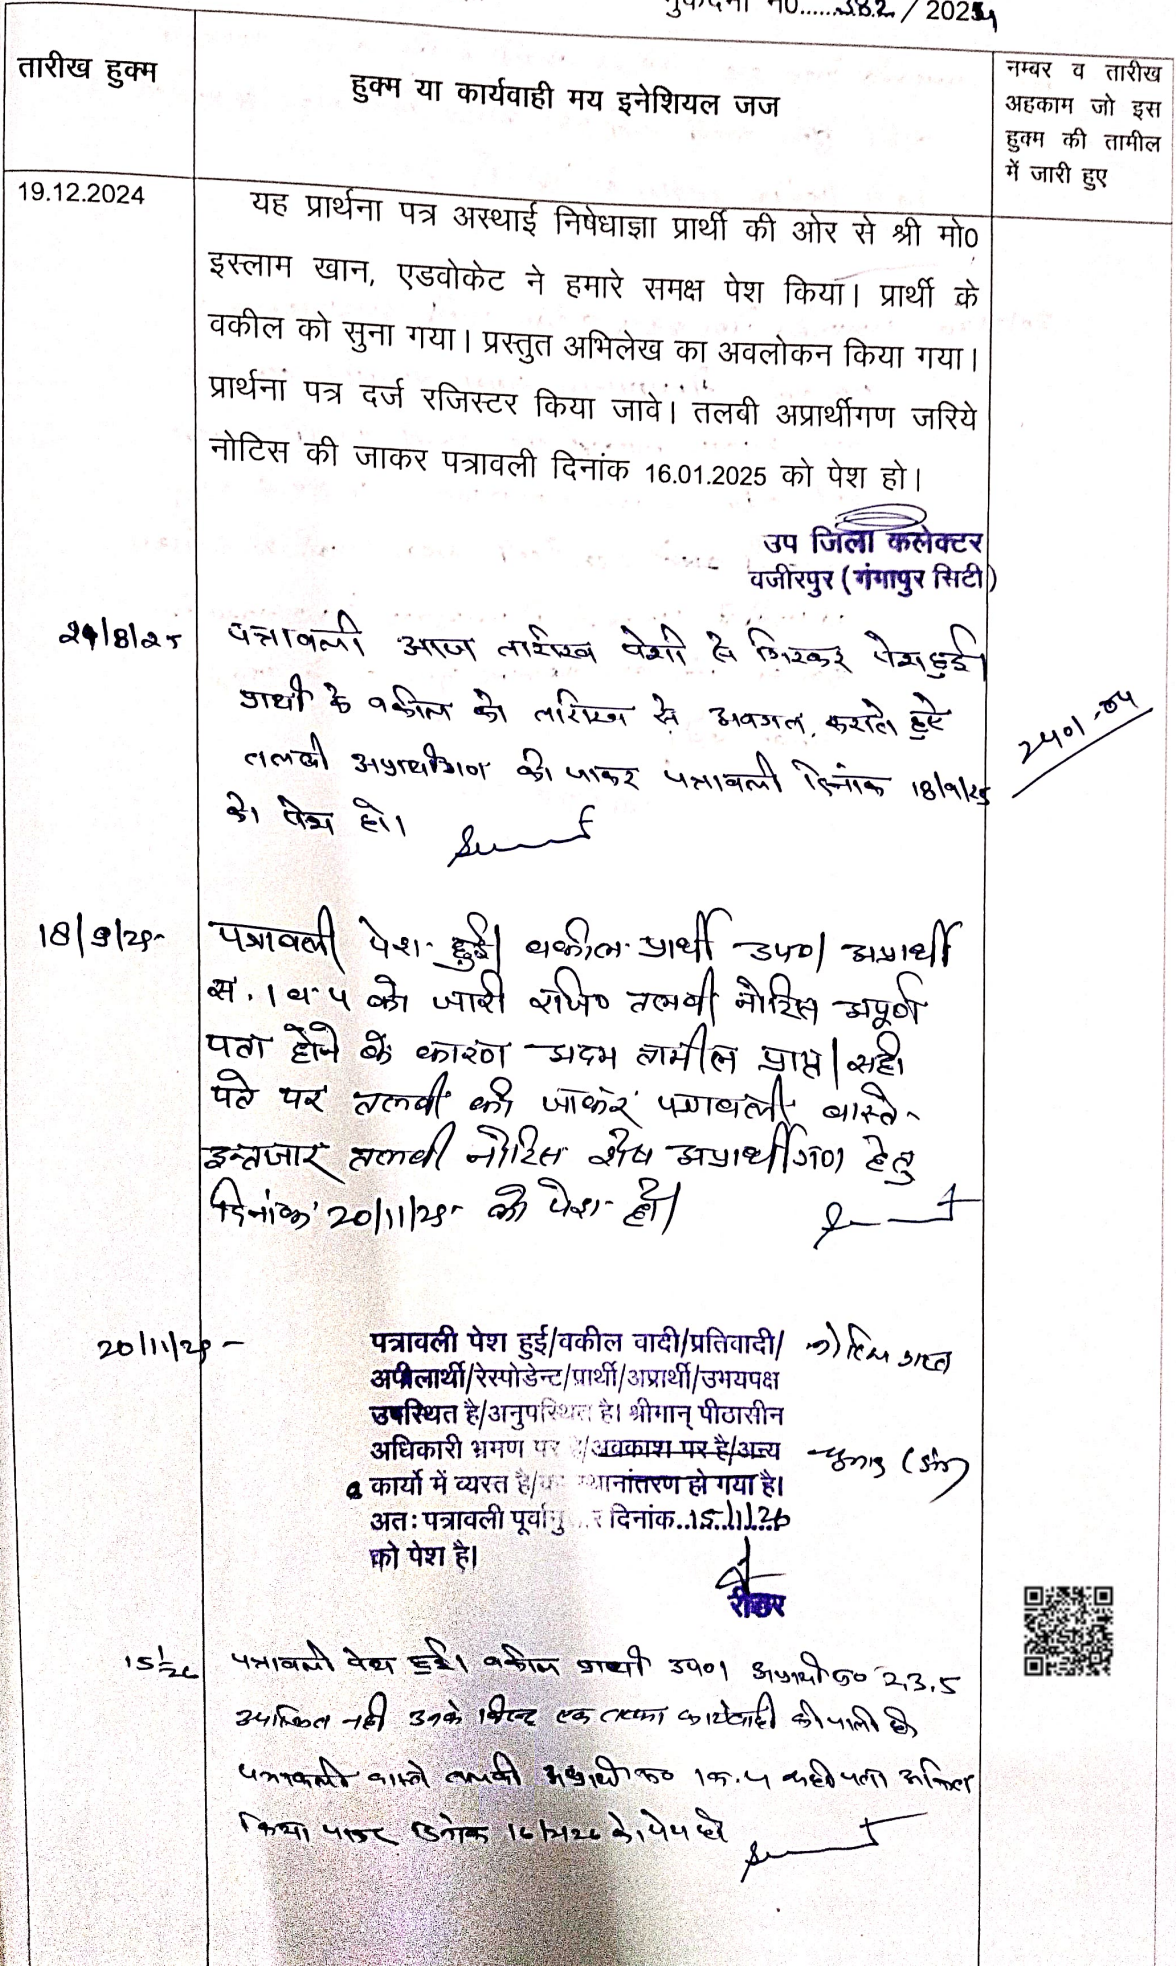 मुकदमा न0......382./2024
तारीख हुक्म
हुक्म या कार्यवाही मय इनेशियल जज
नम्बर व तारीख
अहकाम जो इस
हुक्म की तामील
में जारी हुए
19.12.2024
यह प्रार्थना पत्र अस्थाई निषेधाज्ञा प्रार्थी की ओर से श्री मो0
इस्लाम खान, एडवोकेट ने हमारे समक्ष पेश किया। प्रार्थी के
वकील को सुना गया। प्रस्तुत अभिलेख का अवलोकन किया गया।
प्रार्थना पत्र दर्ज रजिस्टर किया जावे। तलवी अप्रार्थीगण जरिये
नोटिस की जाकर पत्रावली दिनांक 16.01.2025 को पेश हो।
उप जिला कलेक्टर
वजीरपुर (गंगापुर सिटी)
पत्रावली आज तारीख पेशी से गिरकर पेश हुई।
प्रार्थी के वकील को तारीख से अवगत कराते हुऐ
तलबी अप्रार्थीगण की जाकर पत्रावली दिनांक 18/9/25
को पेश हो।
18/9/25
पत्रावली पेश हुई। वकील प्रार्थी उप0। अप्रार्थी
स. 1 व 4 को जारी रजि0 तलबी नोटिस अपूर्ण
पता होने के कारण अदम तामील प्राप्त। सही
पते पर तलबी की जाकर पत्रावली वास्ते
इन्तजार तलबी नोटिस शेष अप्रार्थीगण हेतु
दिनांक 20/11/25 को पेश हो।
20/11/25
पत्रावली पेश हुई/वकील वादी/प्रतिवादी/
अपीलार्थी/रेस्पोडेन्ट/प्रार्थी/अप्रार्थी/उभयपक्ष
उपस्थित है/अनुपस्थित है। श्रीमान् पीठासीन
अधिकारी भ्रमण पर है/अवकाश पर है/अन्य
कार्यो में व्यस्त है/का स्थानांतरण हो गया है।
अतः पत्रावली पूर्वानुसार दिनांक..15/1/26
को पेश है।
रीडर
पत्रावली पेश हुई। वकील प्रार्थी उप0। अप्रार्थी 2,3,5
उपस्थित नही उनके विरुद्ध एक तरफा कार्यवाही की जाती है
पत्रावली वास्ते तलबी अप्रार्थी 4 सही पता
किया जाकर दिनांक को पेश हो